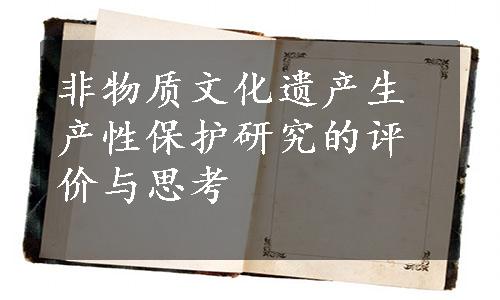 非物质文化遗产生
产性保护研究的评
价与思考